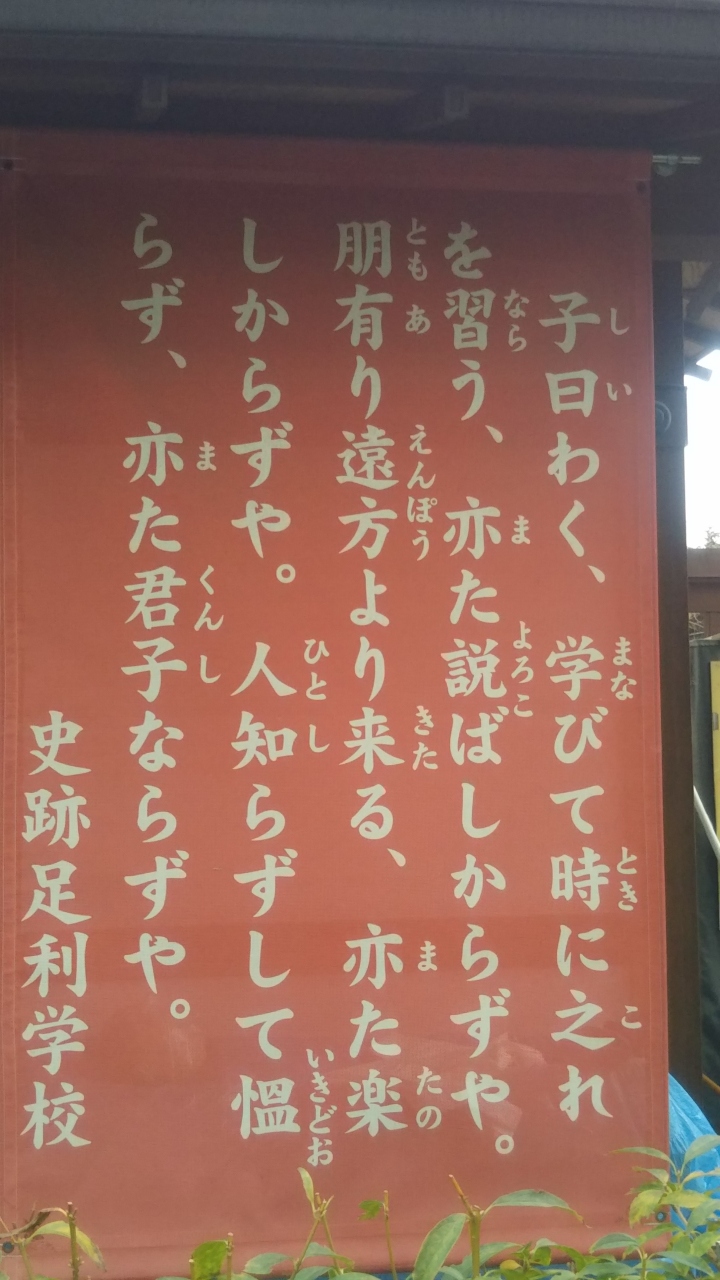 子曰わく、学びて時に之れ
を習う、亦た説ばしからずや。
朋有り遠方より来る、亦た楽
しからずや。人知らずして慍
らず、亦た君子ならずや。
史跡足利学校